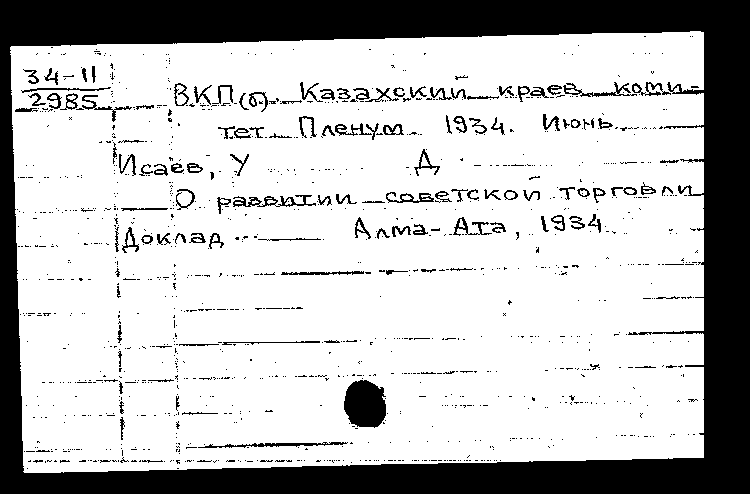 34-11
2985
ВКП(б). Казахский краев. коми-
тет. Пленум. 1934. Июнь.
Исаев, У Д.
О развитии советской торговли
Доклад ... Алма-Ата, 1934.